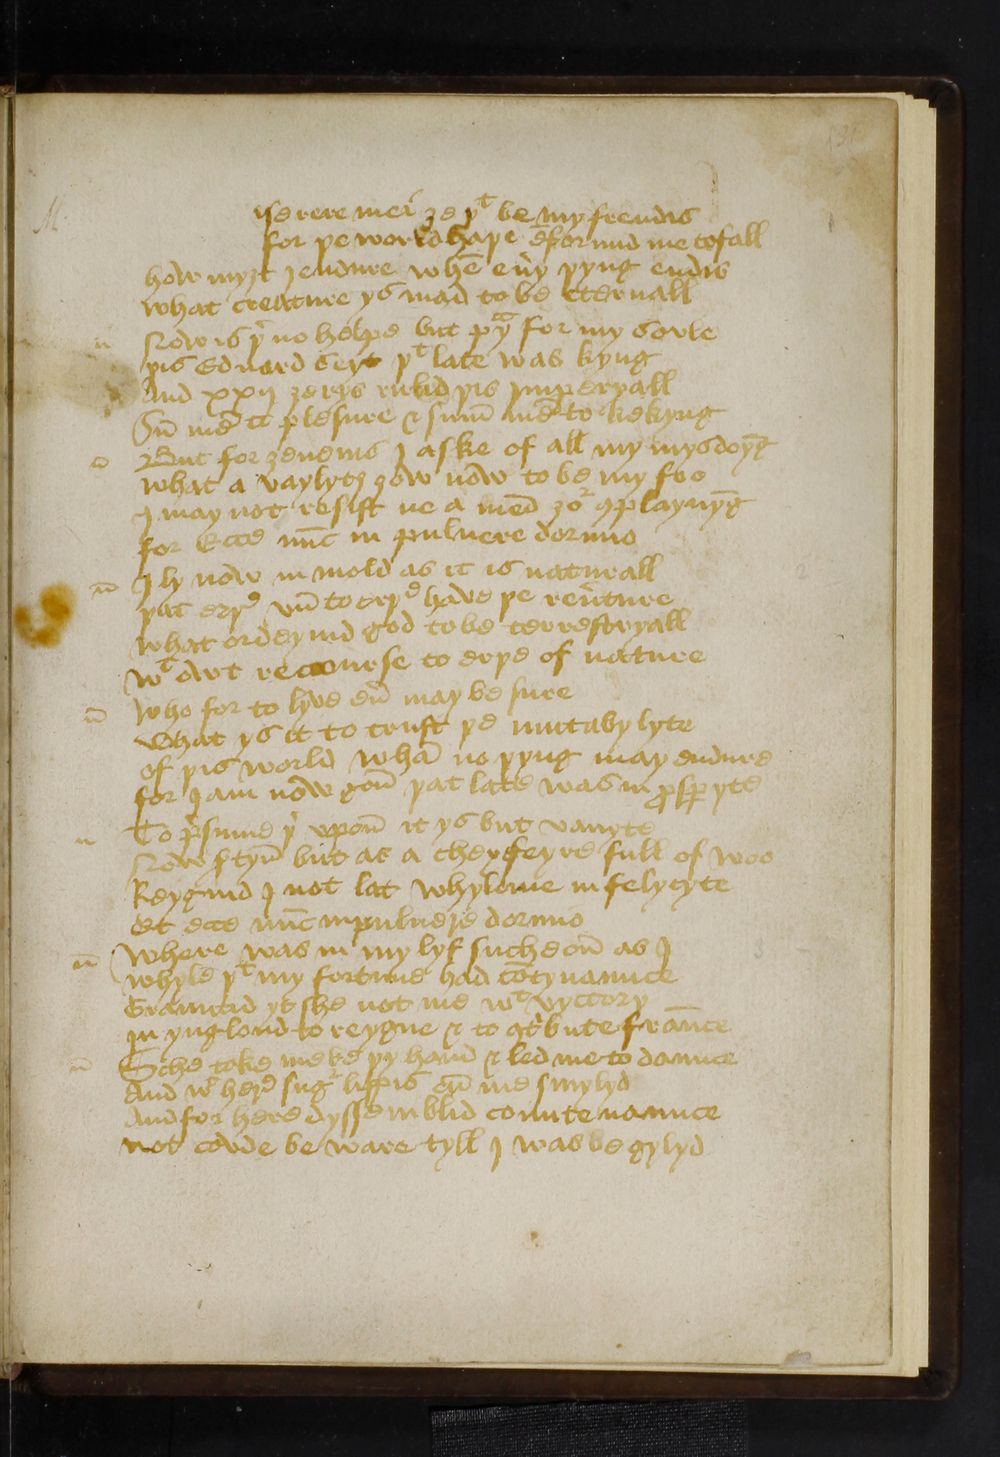 M
iserere mei ȝe þᵗ be my frendis
for þe world haþe enformid me to fall
how myȝt I endure whē eũy þyng endis
what creature ys mad to be eternall
Now is þʳ no helpe but pᵃy for my sovle
þis Edward seyt þᵗ late was kyng
And xxij ȝerys rulid þis Imperyall
Sũ me to plesure & sum me to lickyng
But forȝevenis I aske of all my mysdoyng
what avaylyth ȝow now to be my foo
I may not resist ne amēd ȝoʳ ꝯplaynyg
for Ecce nũc in puluere dormio
I ly now in mold as it is naturall
þat erþᵉ vnto erþᵉ have þe revture
what ordeynid god to be terrestryall
wᵗ owt recourse to erþe of nature
who for to lyve eũ may be sure
what ys it to trust þe mutabylyte
of þis world whā no þyng may endure
for I am now gon þat late was in ꝓsꝑyte
To p̃sume þʳ vpoñ it ys but vanyte
Now styñ but as a cheryfeyre full of woo
Reygnid I not lat whylome in felycyte
Et ecce nũc in puluere dormio
where was in my lyf suche oñ as I
whyle þᵗ my fortune had cõtynaunce
Grauntid yt she not me wᵗ vyctory
In ynglond to reygne & to ꝯtʳbute fraunce
Sche toke me be þy hand & led me to daunce
And wᵗ herᵉ sugʳ lippis oñ me smylyd
And for here dyssemblid countenaunce
not covde be ware tyll I was begylyd